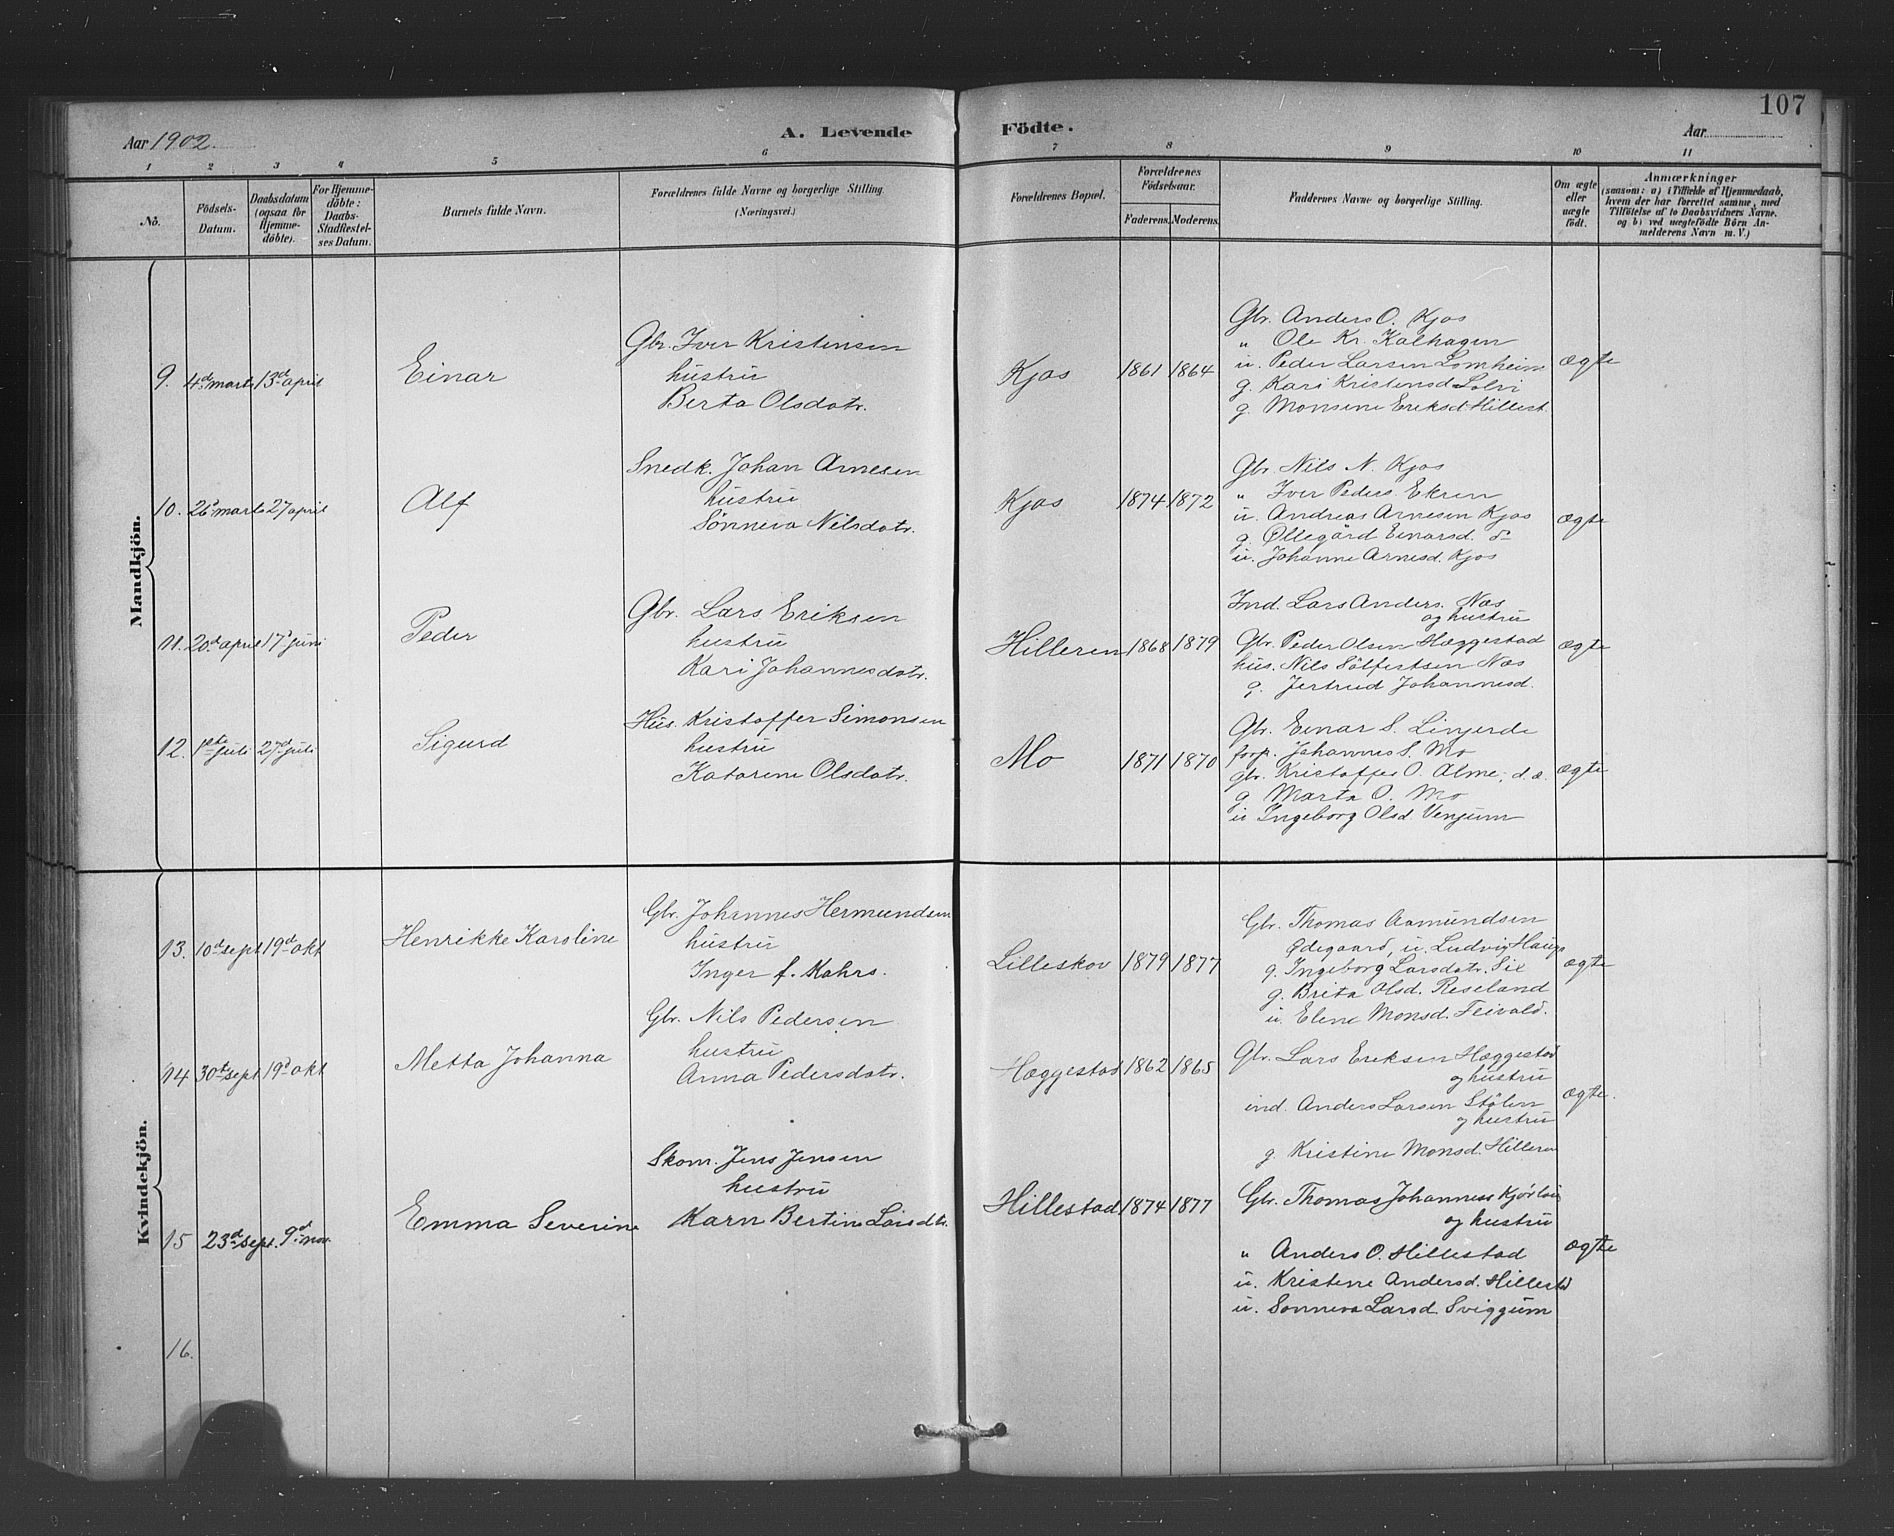 107
Aar 1902.
A. Levende Födte.
Aar
1 2 3 4 5 6 7 8 9 10 11
Nö.
Födsels-Datum.
Daabsdatum (ogsaa for Hjemme-döbte).
For Hjemme-döbte: Daabs-Stadfæstel-ses Datum.
Barnets fulde Navn.
Forældrenes fulde Navne og borgerlige Stilling.
(Næringsvei.)
Forældrenes Bopæl.
Forældrenes Födselsaar.
Faderens. Moderens.
Faddernes Navne og borgerlige Stilling.
Om ægte eller uægte födt.
Anmærkninger
(saasom: a) i Tilfælde af Hjemmedaab,
hvem der har forrettet samme, med
Tilföielse af to Daabsvidners Navne.
og b) ved uægtefödte Börn An-
melderens Navn m. V.)
Mandkjön.
9. 4d marts 13d april
Einar
Gbr. Iver Kristensen
hustru
Berta Olsdatr.
Kjos 1861 1864
Gbr. Anders O. Kjos
" Ole Kr. Kalhagen
u. Peder Larsen Lomheim
g. Kari Kristensd. Solvi
g. Monsine Eriksd. Hillest.
ægte
10. 26 marts 27 april
Alf
Snedk. Johan Arnesen
hustru
Sønneva Nilsdatr.
Kjos 1874 1872
Gbr. Nils N. Kjos
" Iver Peders. Ekren
u. Andreas Arnesen Kjos
g. Øllegård Einarsd.
u. Johanne Arnesd. Kjos
ægte
11. 20d april 17 juni
Peder
Gbr. Lars Eriksen
hustru
Kari Johannesdatr.
Hilleren 1868 1879
Ind. Lars Anders. Næs
og hustru
Gbr. Peder Olsen Hæggestad
hus. Nils Sölfestsen Næs
g. Jertrud Johannesd.
ægte
12. 1ste juli 27d juli
Sigurd
Hus. Kristoffer Simonsen
hustru
Katarene Olsdatr.
Mo 1871 1870
Gbr. Einar S. Linjerde
forp. Johannes S. Mo
gbr. Kristoffer O. Alme, d. æ.
g Marta O. Mo
u Ingeborg Olsd. Venjum
ægte
Kvindekjön.
13. 10d sept 19d okt
Henrikke Karoline
Gbr. Johannes Hermundsen
hustru
Inger f. Kahrs.
Lilleskov 1879 1877
Gbr. Thomas Aamundsen
Ødegaard, u. Ludvig Haugs
g. Ingeborg Larsdatr. Six
g. Brita Olsd. Reseland
u. Elene Monsd. Feivald.
ægte
14 30te sept 19d okt
Metta Johanna
Gbr. Nils Pedersen
hustru
Anna Pedersdatr.
Hæggestad 1862 1865
Gbr. Lars Eriksen Hæggestad
og hustru
ind. Anders Larsen Stölen
og hustru
g. Kristine Monsd. Hilleren
ægte.
15 23d sept. 9d nov.
Emma Severine
Skom. Jens Jensen
hustru
Karn Bertine Larsdtr.
Hillestad 1874 1877
Gbr. Thomas Johanness
og hustru
" Anders O. Hillestad
u. Kristine Andersd. Hillestd
u. Sonneva Larsd. Sviggum
ægte
16.